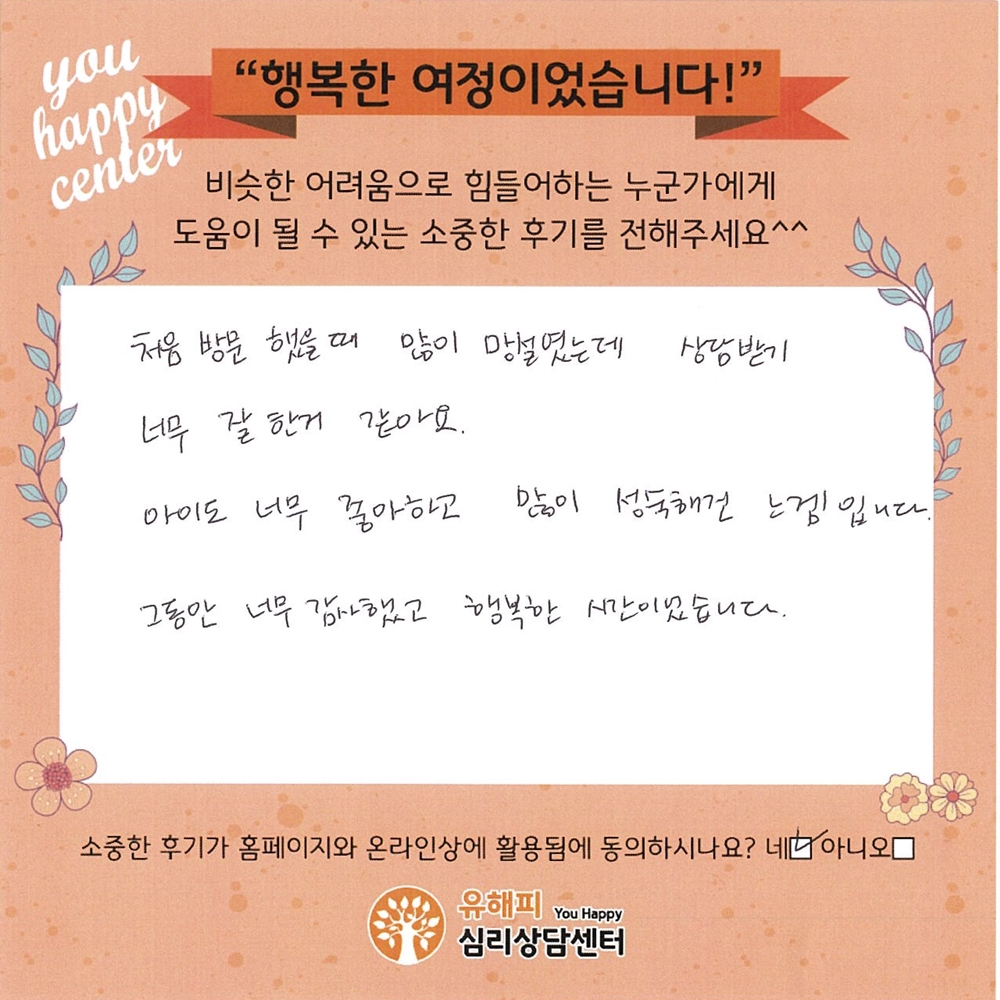 you
happy
center
“행복한 여정이었습니다!”
비슷한 어려움으로 힘들어하는 누군가에게
도움이 될 수 있는 소중한 후기를 전해주세요^^
처음 방문 했을때 많이 망설였는데 상담받기
너무 잘 한거 같아요.
아이도 너무 좋아하고 많이 성숙해건 느겜입니다.
그동안 너무 감사했고 행복한 시간이었습니다.
소중한 후기가 홈페이지와 온라인상에 활용됨에 동의하시나요? 네☑ 아니오☐
유해피 You Happy
심리상담센터